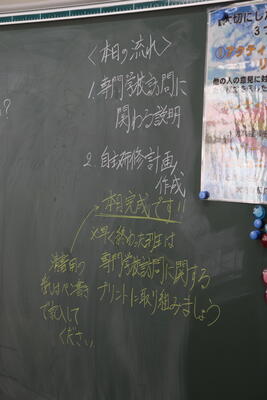 <本日の流れ>
1.専門学校訪問に
関わる説明
2.自主研修計画
作成
本日完成です!!
※早く終わった班は
専門学校訪問に関する
プリントに取り組みましょう
清書用の
紙はペン書き
で記入して
ください
?
大切にし
3つ
他の人の意見に対